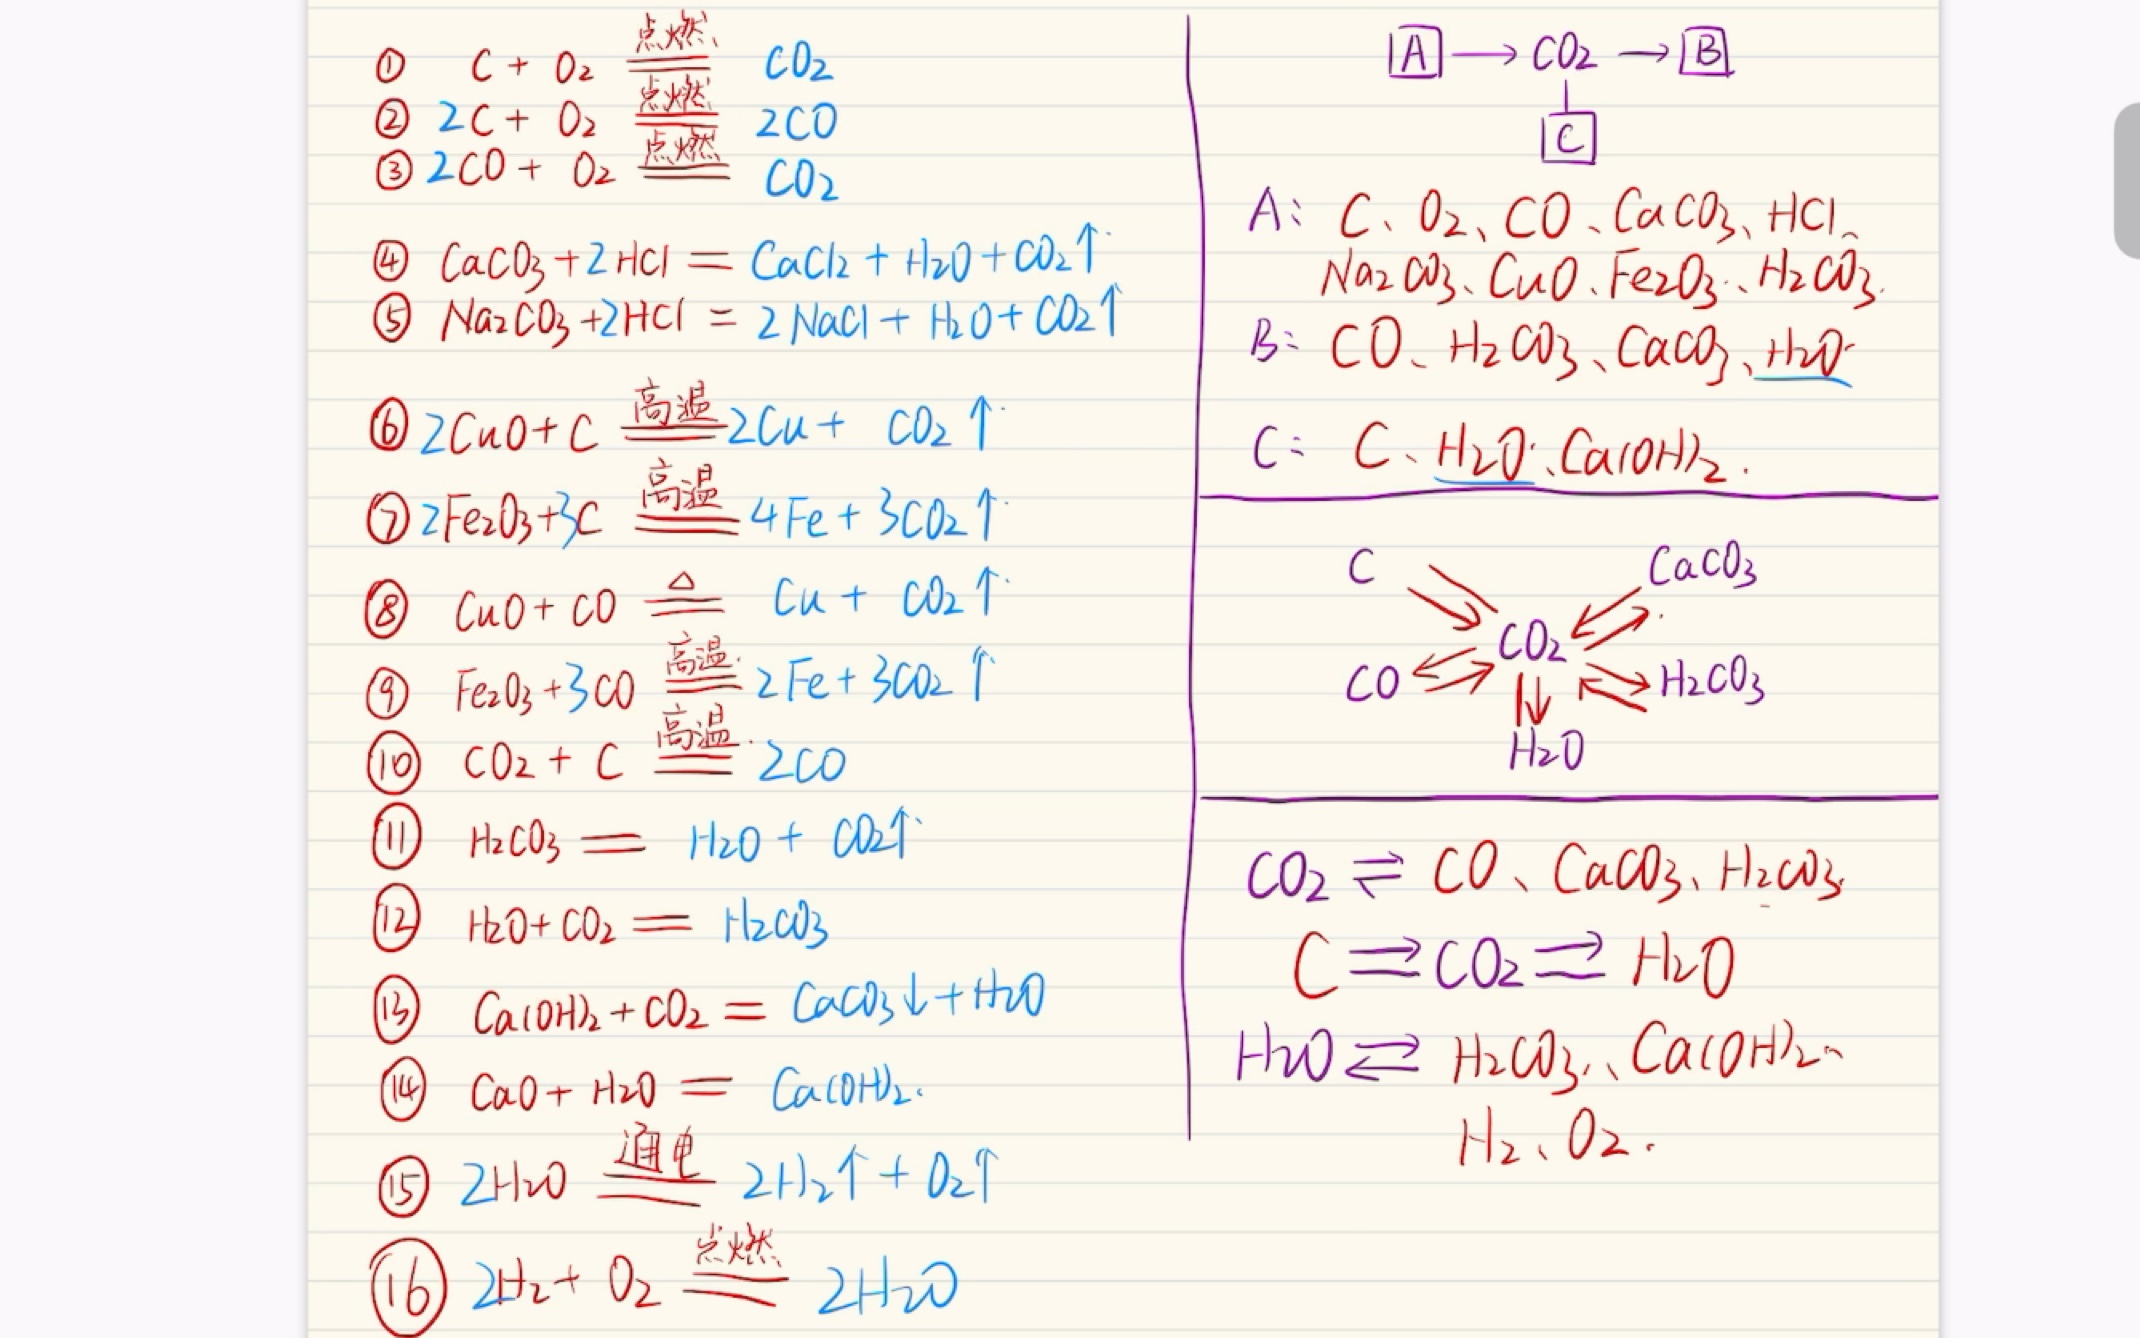 ① C + O₂ 点燃 CO₂
② 2C + O₂ 点燃 2CO
③ 2CO + O₂ 点燃 CO₂
④ CaCO₃ + 2HCl = CaCl₂ + H₂O + CO₂↑
⑤ Na₂CO₃ + 2HCl = 2NaCl + H₂O + CO₂↑
⑥ 2CuO + C 高温 2Cu + CO₂↑
⑦ 2Fe₂O₃ + 3C 高温 4Fe + 3CO₂↑
⑧ CuO + CO △ Cu + CO₂↑
⑨ Fe₂O₃ + 3CO 高温 2Fe + 3CO₂↑
⑩ CO₂ + C 高温 2CO
⑪ H₂CO₃ = H₂O + CO₂↑
⑫ H₂O + CO₂ = H₂CO₃
⑬ Ca(OH)₂ + CO₂ = CaCO₃↓ + H₂O
⑭ CaO + H₂O = Ca(OH)₂.
⑮ 2H₂O 通电 2H₂↑ + O₂↑
⑯ 2H₂ + O₂ 点燃 2H₂O
A → CO₂ → B
C
A: C、O₂、CO、CaCO₃、HCl、
Na₂CO₃、CuO、Fe₂O₃、H₂CO₃.
B: CO、H₂CO₃、CaCO₃、H₂O
C: C、H₂O、Ca(OH)₂.
C CaCO₃
CO₂
CO H₂CO₃
H₂O
CO₂ ⇌ CO、CaCO₃、H₂CO₃.
C ⇉ CO₂ ⇉ H₂O
H₂O ⇌ H₂CO₃、Ca(OH)₂、
H₂、O₂.